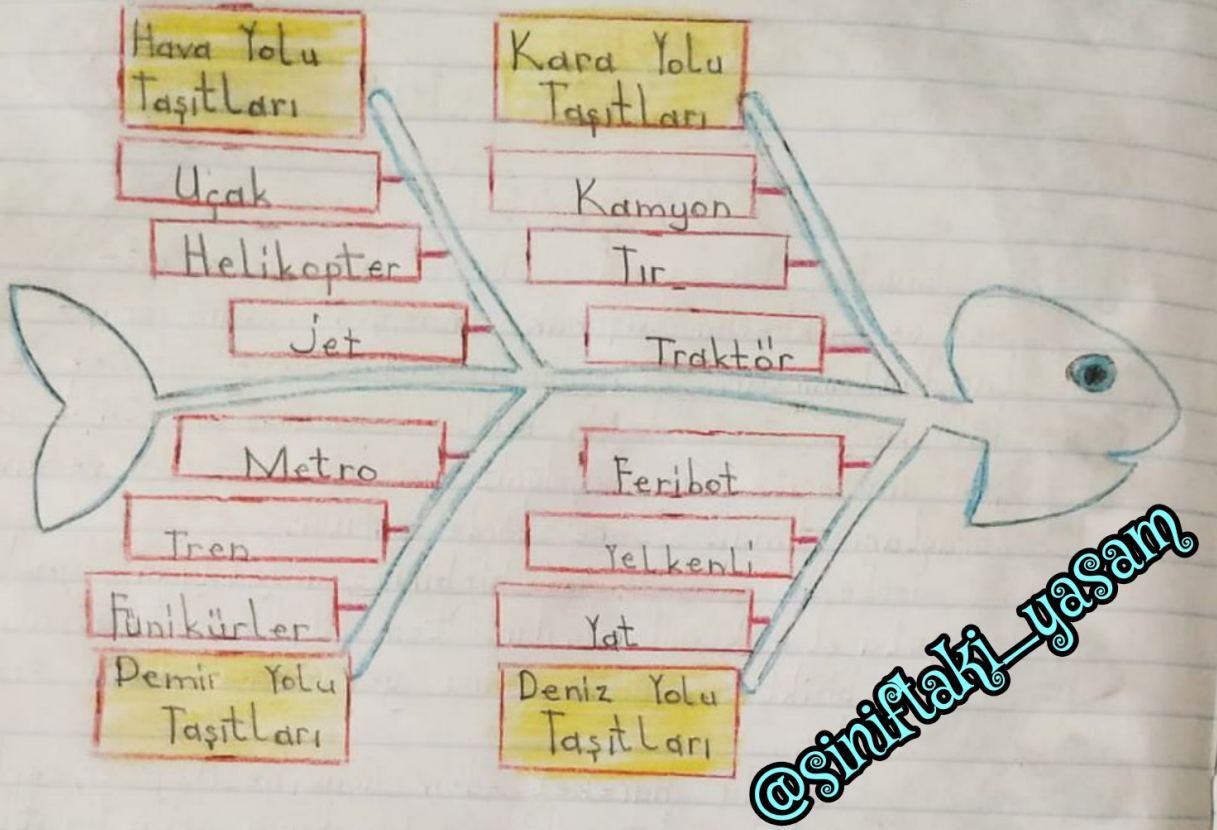 Hava Yolu
Taşıtları
Uçak
Helikopter
Jet
Kara Yolu
Taşıtları
Kamyon
Tır
Traktör
Metro
Tren
Fünikürler
Demir Yolu
Taşıtları
Feribot
Yelkenli
Yat
Deniz Yolu
Taşıtları
@siniftaki_yasam